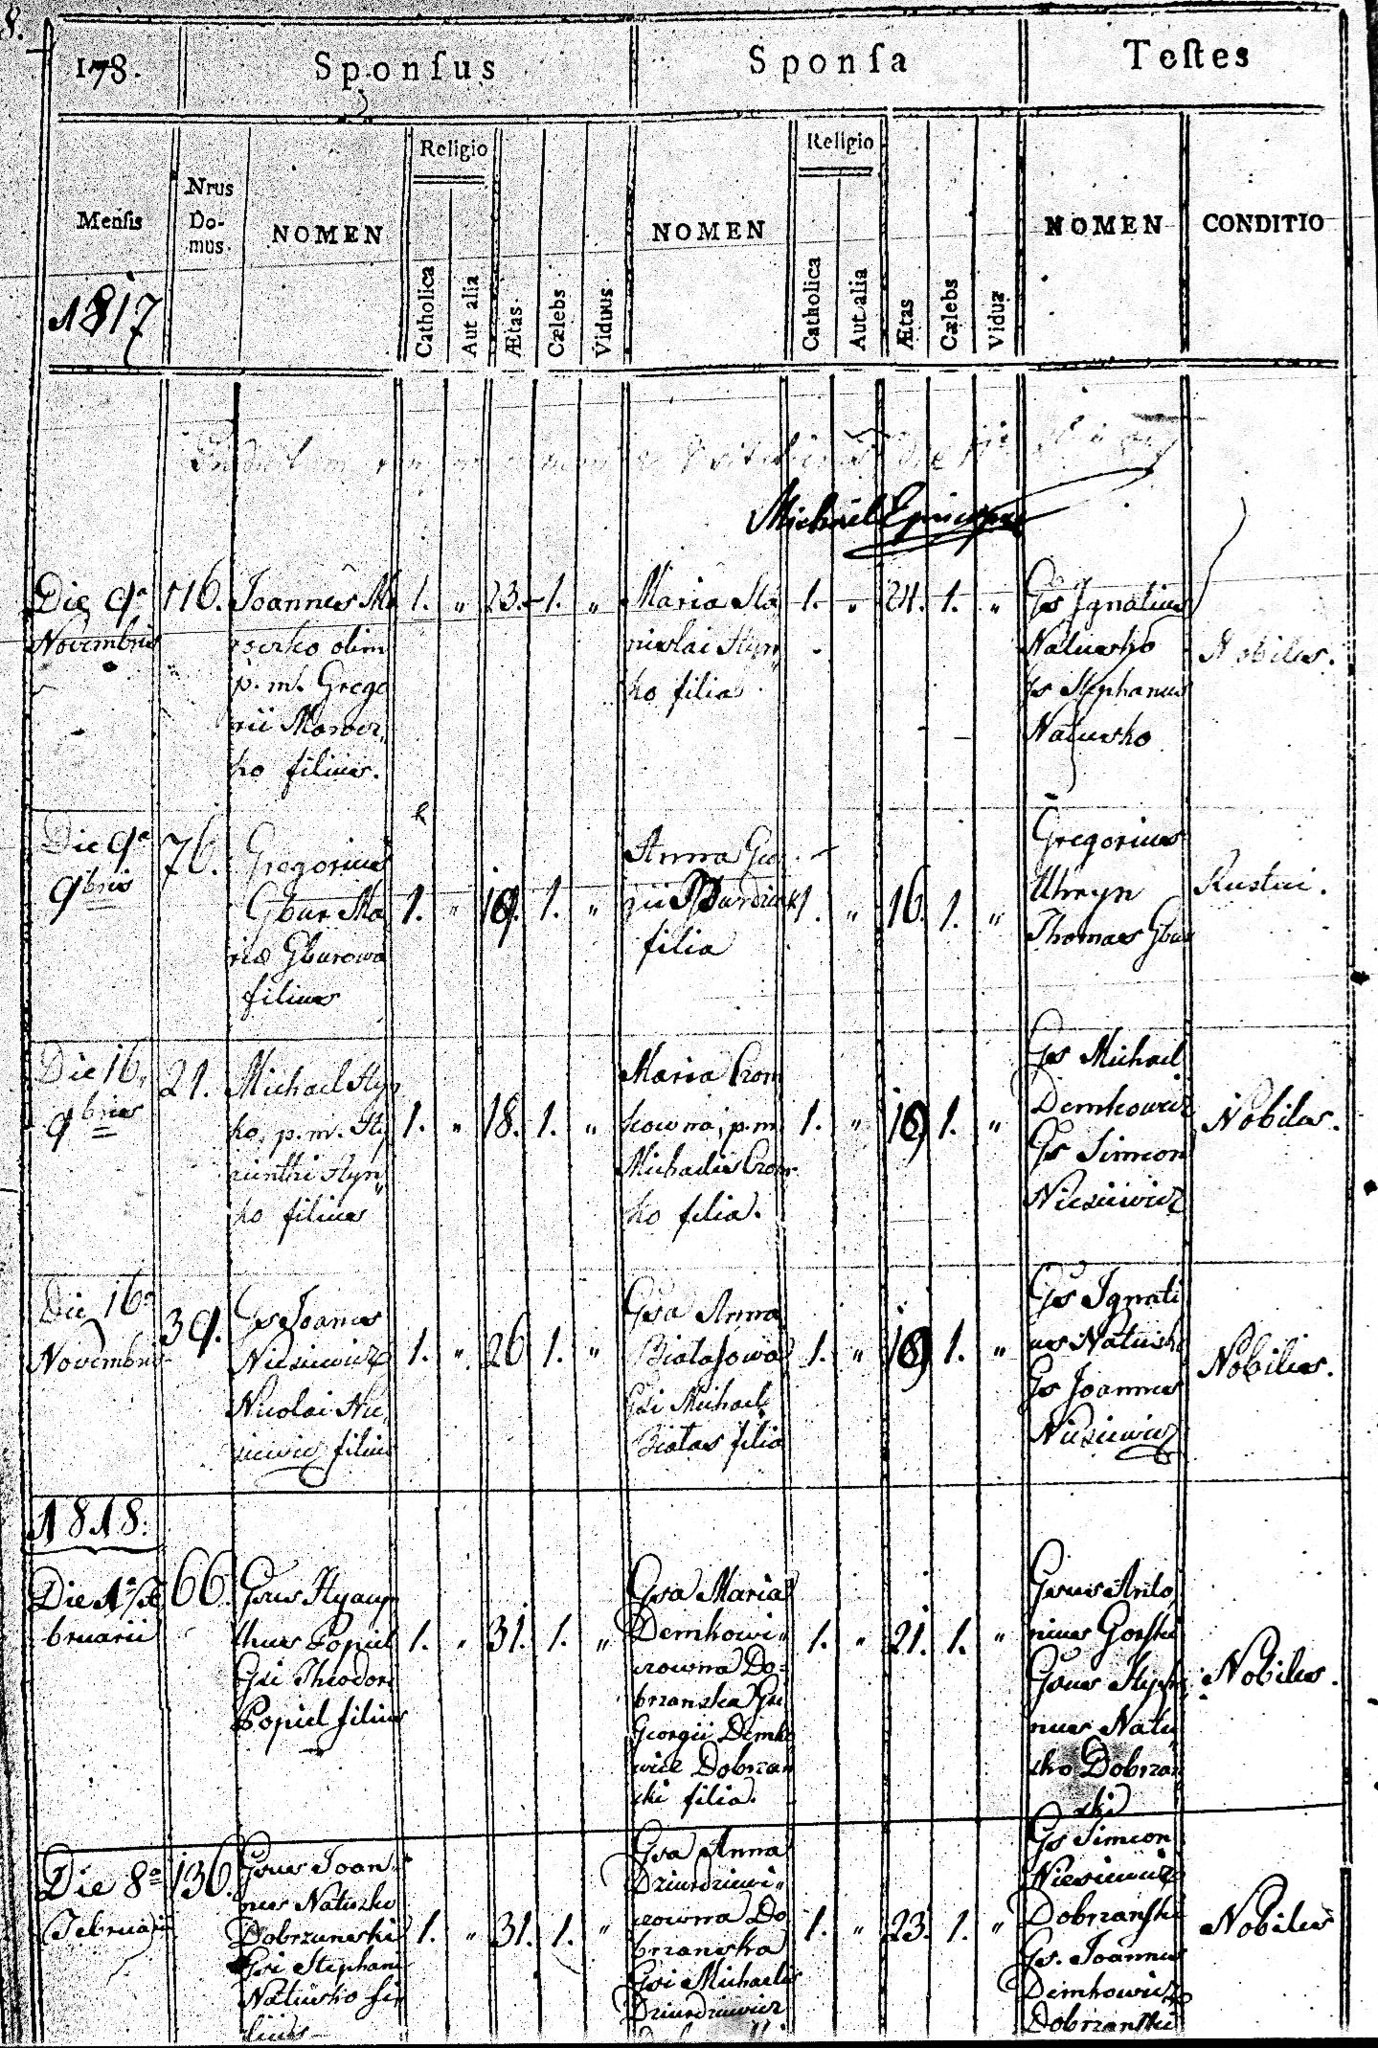 8.
178.
Sponſus
Sponſa
Teſtes
Menſis
Nrus
Do-
mus.
NOMEN
Religio
Catholica
Aut alia
Ætas.
Cælebs
Viduus.
NOMEN
Religio
Catholica
Aut alia
Ætas
Cælebs
Vidua
NOMEN
CONDITIO
1817
Michael
Die 9a
Novembris
116.
Joannes Mo
p. m. Grego
rii
ko filius.
1. " 23. 1. "
Maria Sta
nislai Hyn
ko filia
1. " 1. "
Gs Ignatius
Natusko
Gs Stephanus
Natusko
Nobiles.
Die 9a
9bris
76.
Gregorius
Gbur Ma
ria Gburowa
filius
1. " 19. 1. "
Anna Geo
rgii
filia
1. " 16. 1. "
Gregorius
Uhryn
Thomas Gbur
Rustici.
Die 16.
9bris
21.
Michael Hyn
ko, p. m. Hy
acinthi Hyn
ko filius
1. " 18. 1. "
Maria Crom
kowna, p. m.
Michaelis Crom
ko filia.
1. " 1. "
Gs Michael
Demkowicz
Gs Simeon
Niesiewicz
Nobiles.
Die 16a
Novembris
39.
Gs Joannes
Niesiewicz
Nicolai Nie
siewicz filius
1. " 26 1. "
Gsa Anna
Białasowa
Gsi Michael
Białas filia
1. " 1. "
Gs Ignati
us Natusko
Gs Joannes
Niesiewicz
Nobiles.
1818.
Die 1a Fe
bruarii
66.
Gsus Hyacyn
thus Popiel
Gsi Theodori
Popiel filius
1. " 31. 1. "
Gsa Maria
Demkowi
czowna Do-
brzanska Gsi
Georgii Demko
wicz Dobrzan
ski filia.
1. " 21. 1. "
Gsus Anto
nius Gorski
Gsus Stepha
nus Natu
sko Dobrzan
ski
Nobiles.
Die 8a
Februarii
136.
Gsus Joan-
nes Natusko
Dobrzanski
Gsi Stephani
Natusko fi
lius
1. " 31. 1. "
Gsa Anna
Dziurdziewi-
czowna Do
brzanska
Gsi Michaelis
Dziurdziewicz
1. " 23. 1. "
Gs Simeon
Niesiewicz
Dobrzanski
Gs. Joannes
Demkowicz
Dobrzanski
Nobiles